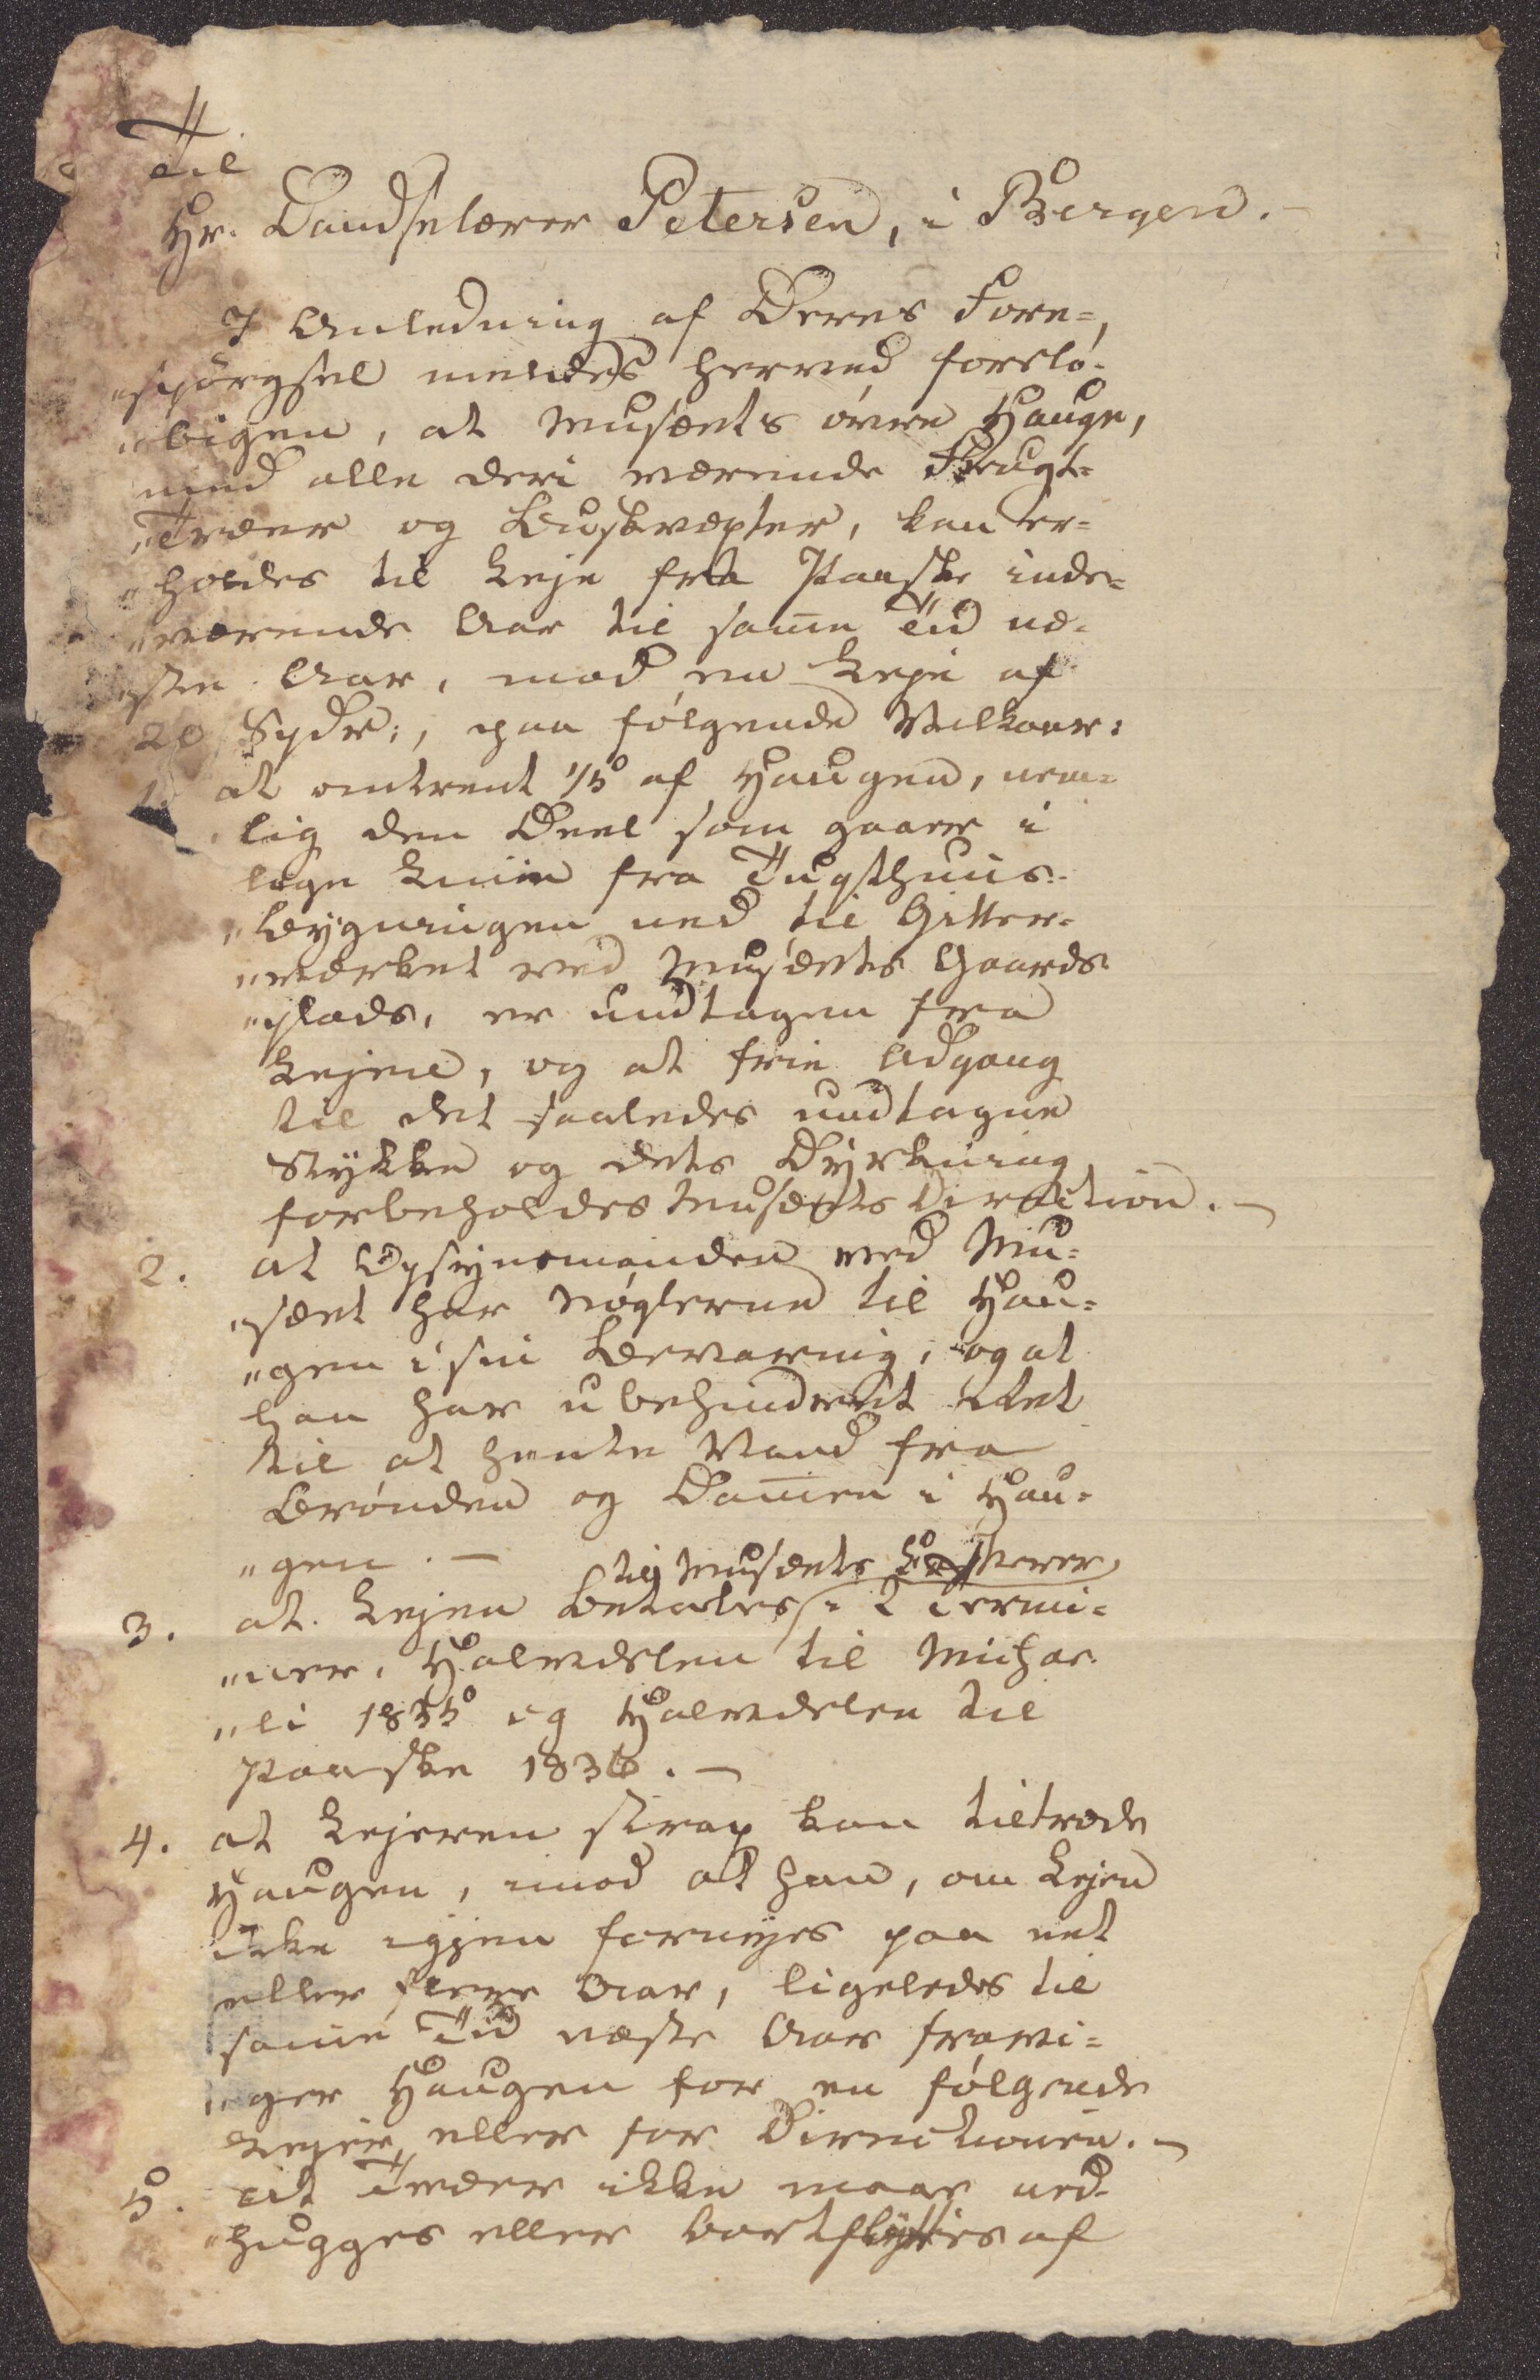 Til
Hr. Dandselærer Petersen, i Bergen.
I Anledning af Deres Fore=
„spörgsel meldes herved forelö-
„bigen, at Musæets øvre Hauge,
med alle deri værende Frugt-
„Træer og Buskvæxter, kan er=
„holdes til Leje fra Paaske inde=
„værende Aar til samme Tid næ-
„ste Aar, mod en Leje af
20 Spdr:, paa følgende Vilkaar:
1. at omtrent 1/5 af Haugen, nem=
lig den Deel som gaaer i
lige Linie fra Tugthuus-
„bygningen ned til Gitter-
„værket ved Musæets Gaards-
„plads, er undtagen fra
Lejen, og at frie Adgang
til det saaledes undtagne
Stykke og dets Dyrkning
forbeholdes Musæets Direction.
2. at Opsynsmanden ved Mu=
„sæet har Nøglerne til Hau=
„gen i sin Bevaring, og at
han har ubehindret Ret
til at hente Vand fra
Brønden og Dammen i Hau=
„gen.
til Musæets Kasserer
3. at Lejen betales i 2 Termi=
„ner, Halvdelen til Michae-
„li 1835 og Halvdelen til
Paaske 1836.
4. at Lejeren strax kan tiltræde
Haugen, imod at han, om Lejen
ikke igjen fornyes paa eet
eller flere Aar, ligeledes til
samme Tid næste Aar fravi=
„ger Haugen for en følgende
Lejer, eller for Directionen.
5. at Træer ikke maae ned-
„hugges eller bortflyttes af